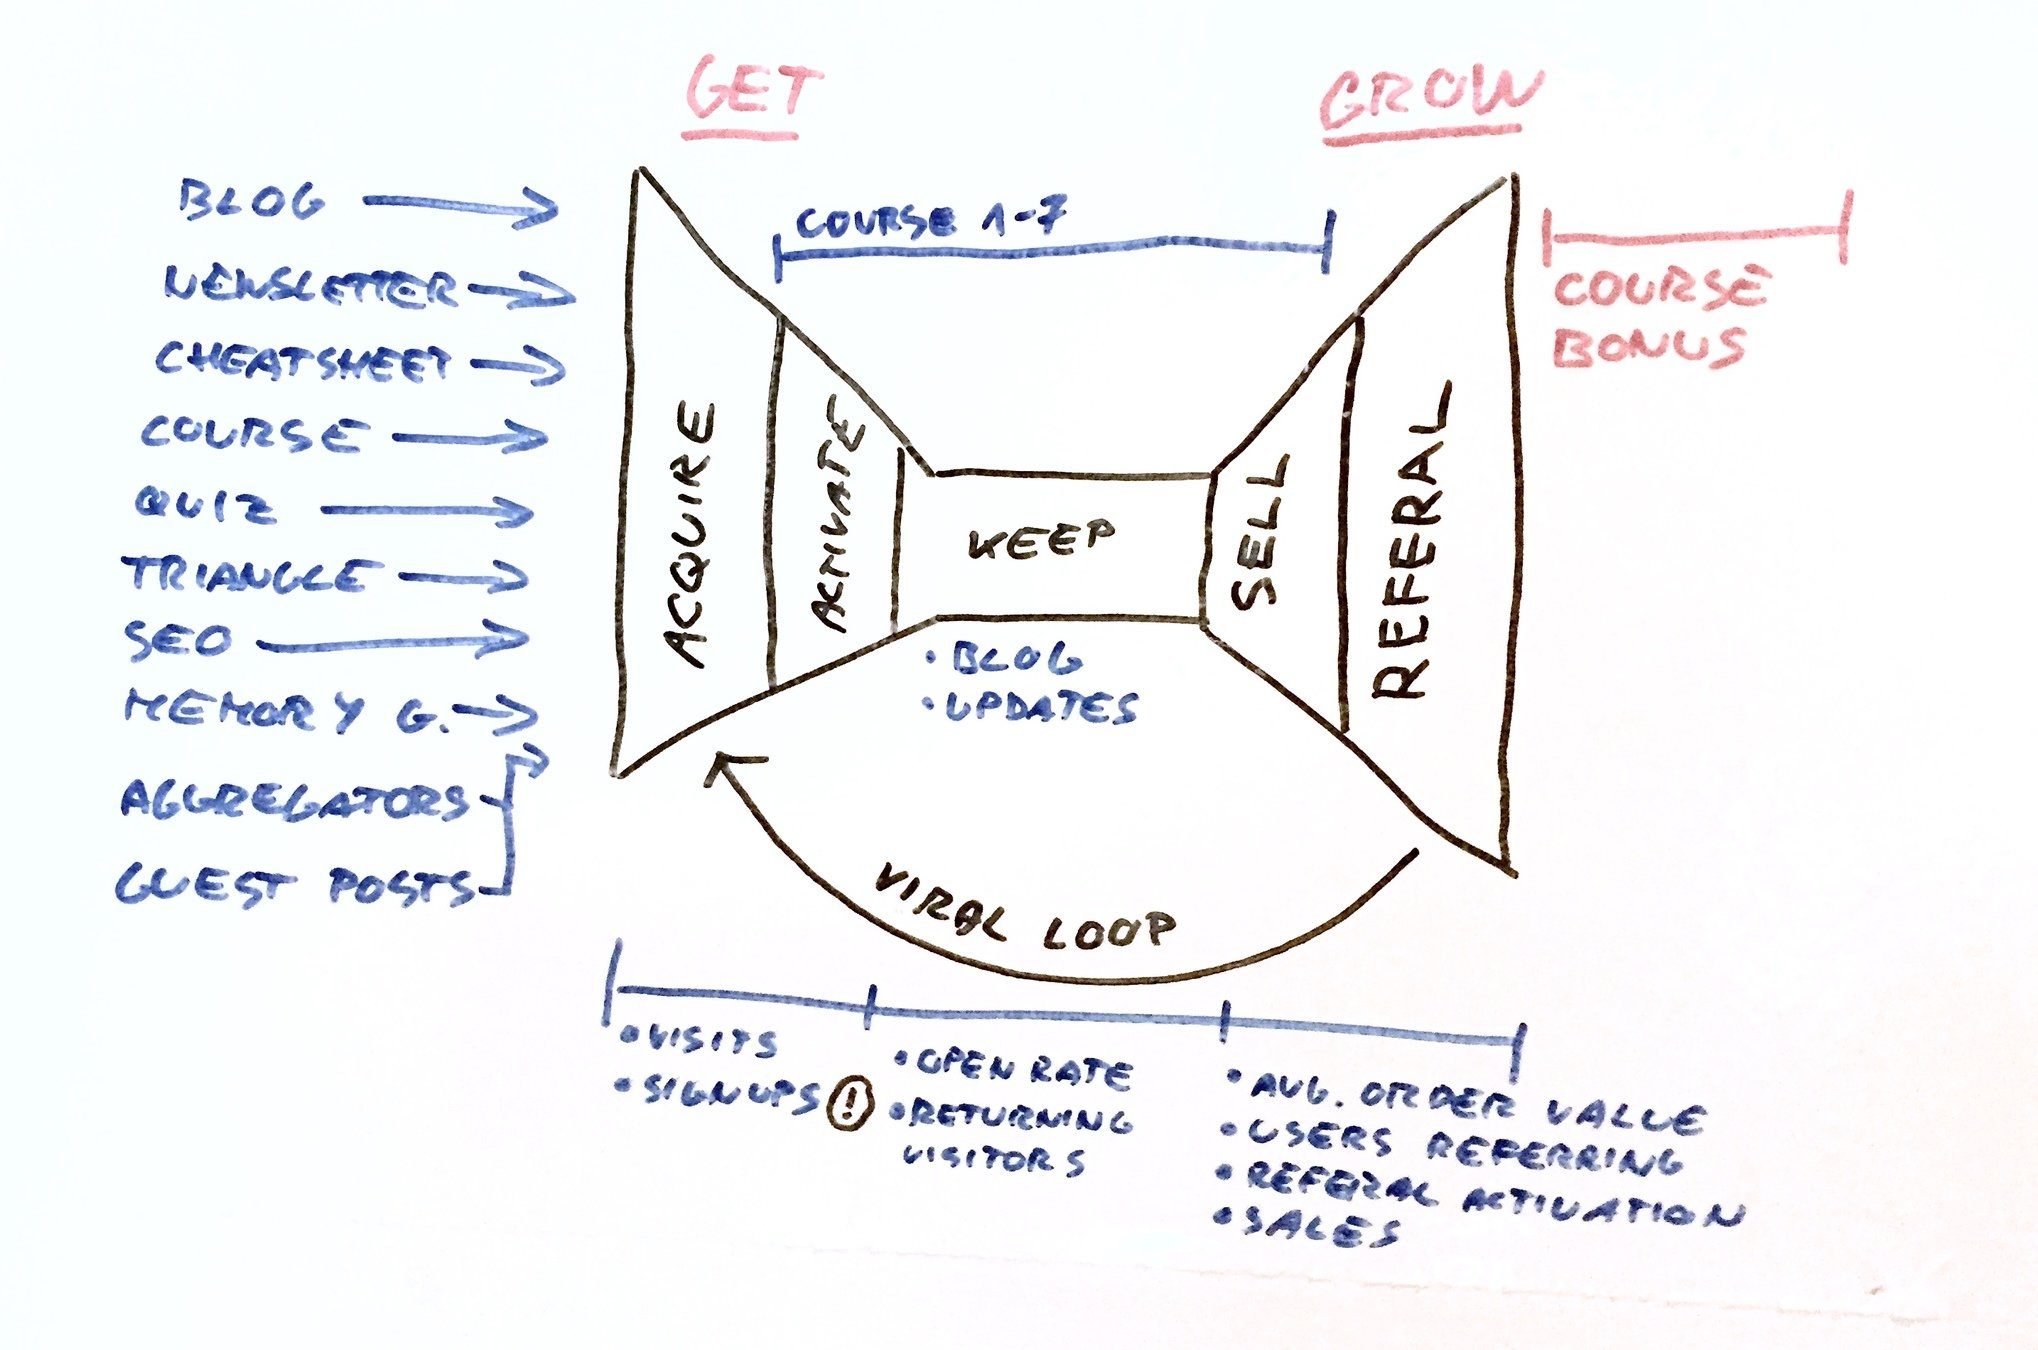 GET
GROW
BLOG
NEWSLETTER
CHEATSHEET
COURSE
QUIZ
TRIANGLE
SEO
MEMORY G.
AGGREGATORS
GUEST POSTS
COURSE 1-7
COURSE
BONUS
ACQUIRE
ACTIVATE
KEEP
SELL
REFERAL
• BLOG
• UPDATES
VIRAL LOOP
• VISITS
• SIGNUPS !
• OPEN RATE
• RETURNING
VISITORS
• AVG. ORDER VALUE
• USERS REFERRING
• REFERAL ACTIVATION
• SALES